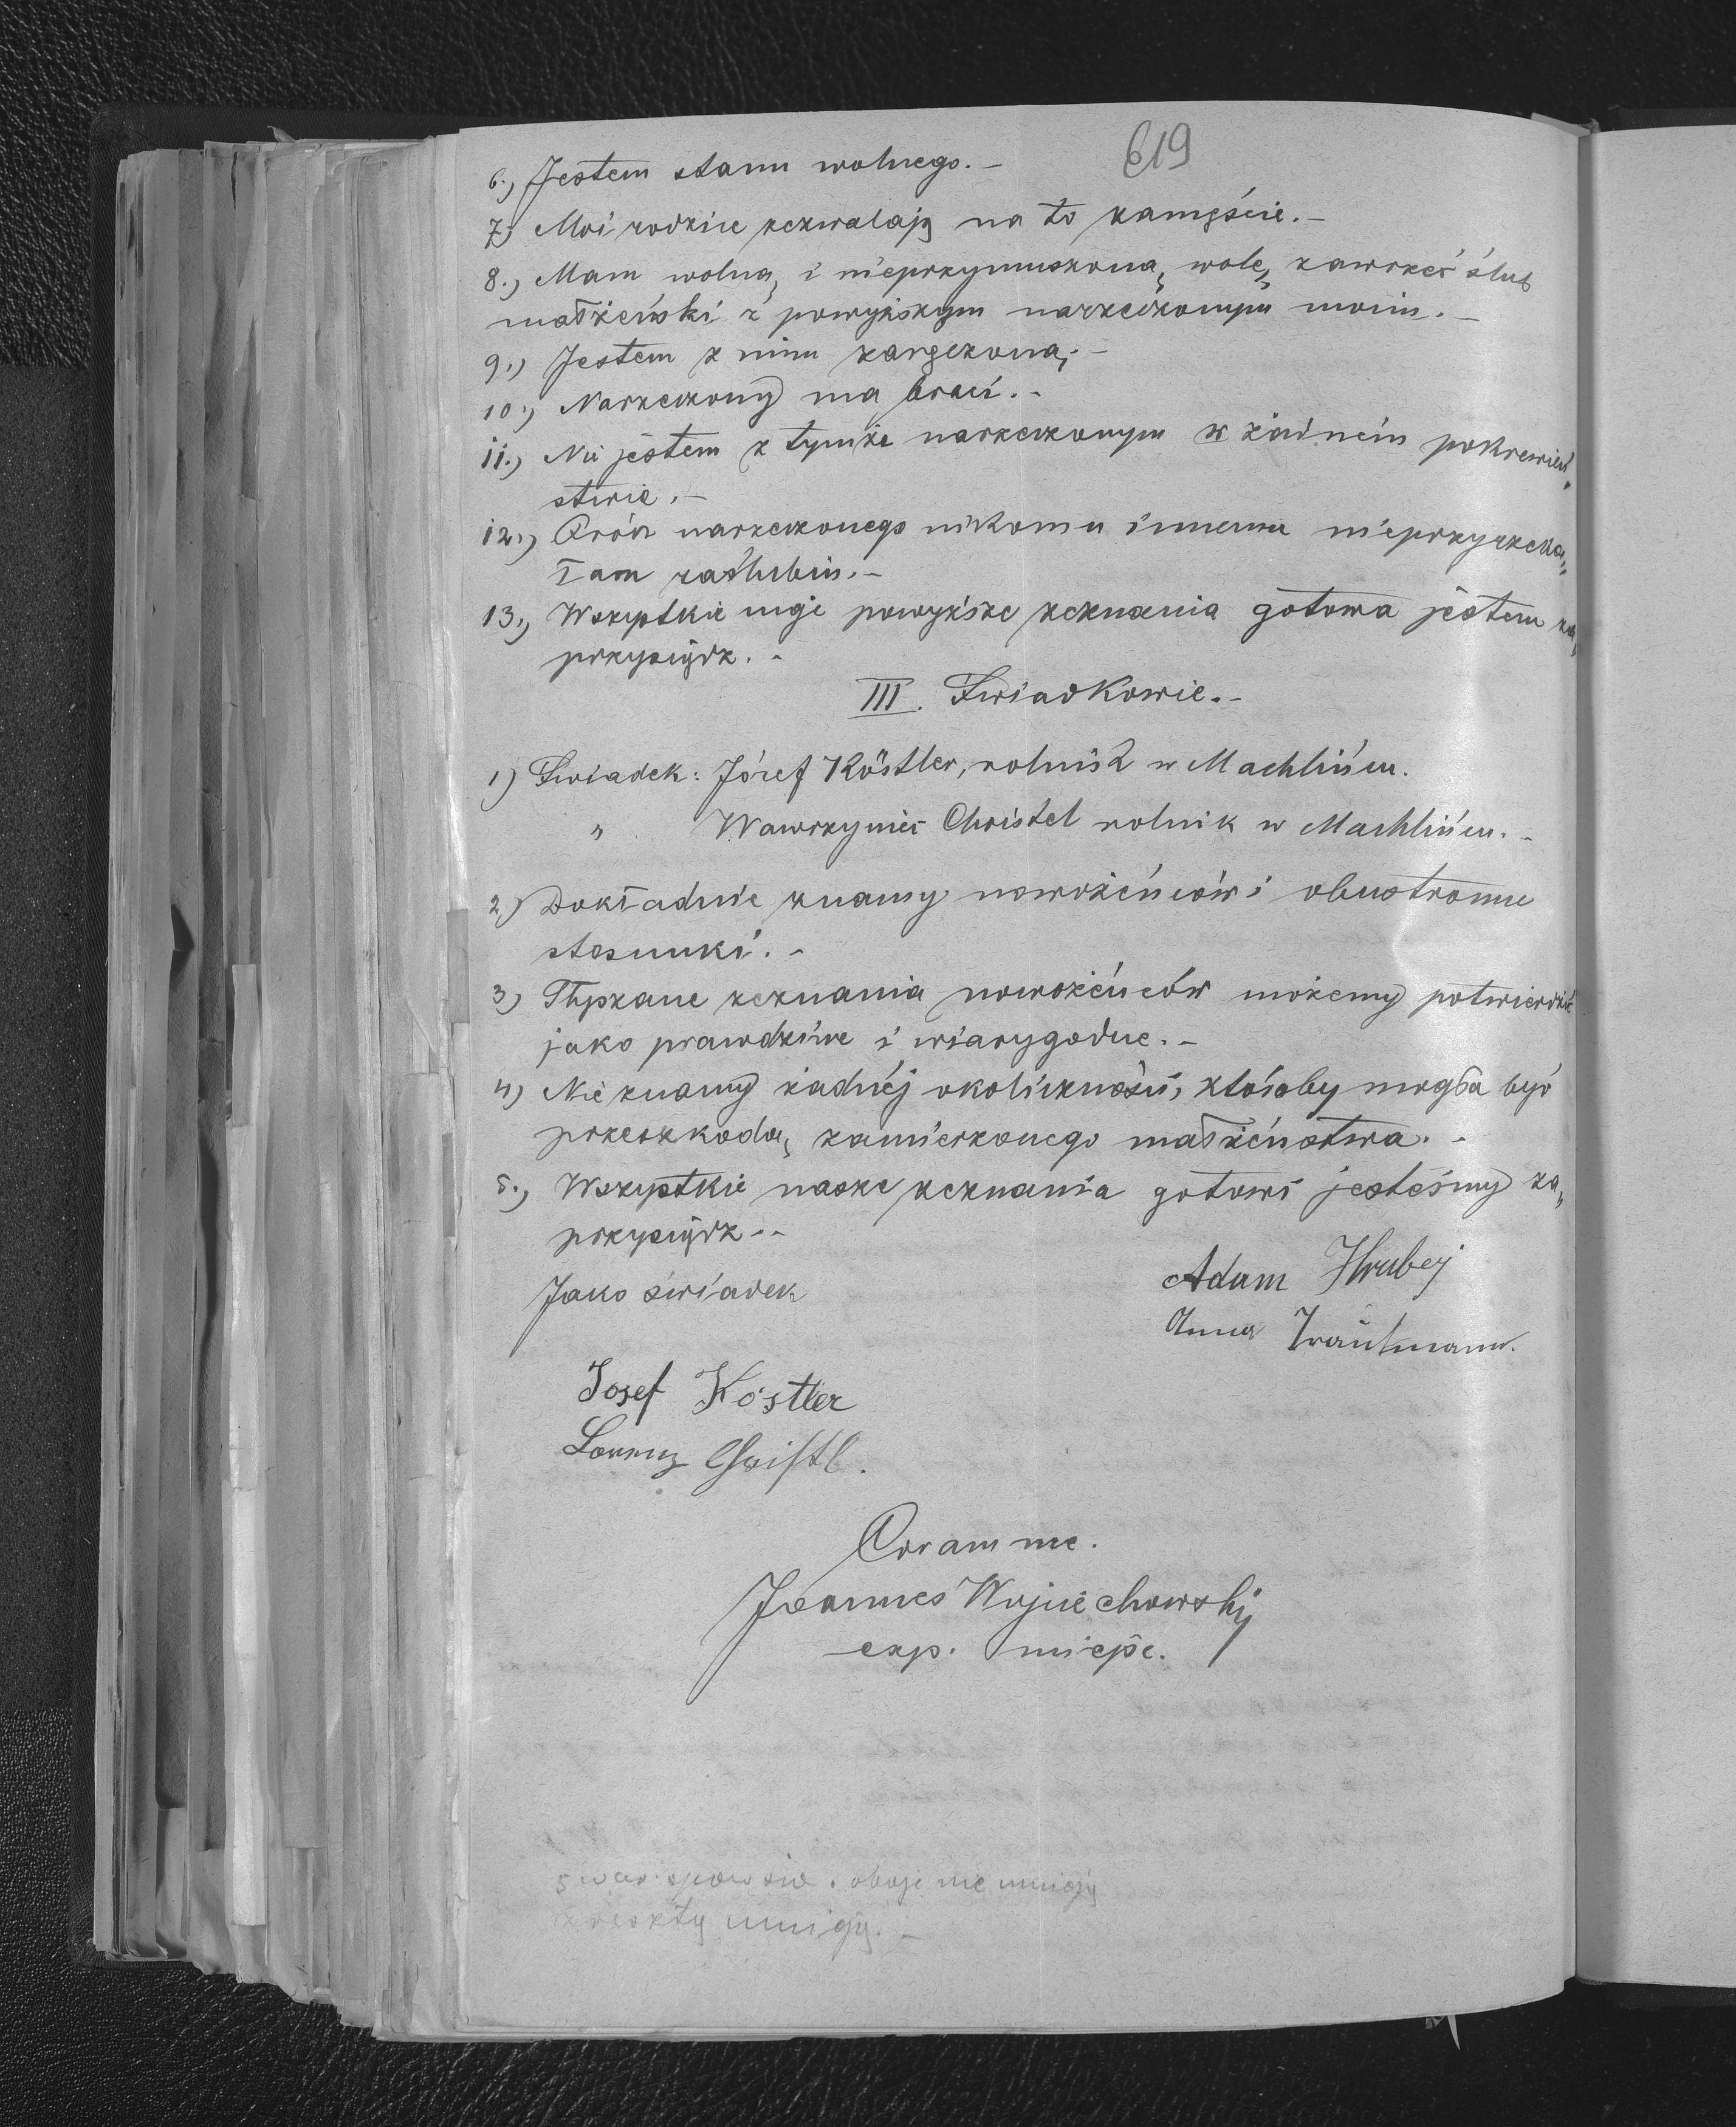 619
6.) Jestem stanu wolnego. –
7.) Moi rodzice zezwalają na to zamęście. –
8.) Mam wolną i nieprzymuszoną wolę zawrzeć ślub
małżeński z powyższym narzeczonym moim. –
9.) Jestem z nim zaręczona. –
10.) Narzeczony ma braci. –
11.) Nie jestem z tymże narzeczonym w żadnem pokrewień„
stwie. –
12.) Prócz narzeczonego nikomu innemu nieprzyrzeka„
łam zaślubin. –
13.) Wszystkie moje powyższe zeznania gotowa jestem za„
przysiądz. –
III. Świadkowie. –
1) Świadek: Józef Köstler, rolnik w Machlińcu.
" Wawrzyniec Christel rolnik w Machlińcu. –
2) Dokładnie znamy nowożeńców i obustronne
stosunki. –
3) zeznania nowożeńców możemy potwierdzić
jako prawdziwe i wiarygodne. –
4) Nie znamy żadnéj okoliczności, któraby mogła być
przeszkodą zamierzonego małżeństwa. –
5.) Wszystkie nasze zeznania gotowi jesteśmy za„
przysiądz. –
Adam Hrubey
Jako świadek
Anna Trautmann.
Josef Köstler
Lorenz Christl.
Coram me.
Joannes Wojciechowski
exp. miejsc.
oboje nie umieją
reszty umieją. –